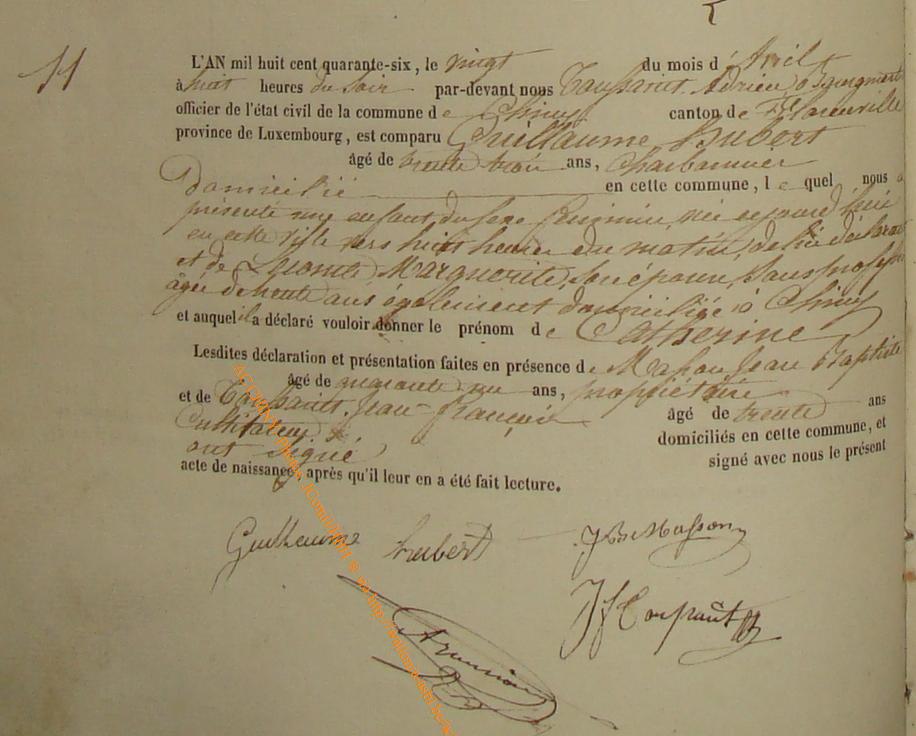 11
L'AN mil huit cent quarante-six, le vingt du mois d'Avril
à huit heures du soir par-devant nous Toussaint Adrien
officier de l'état civil de la commune de Chiny canton de Florenville
province de Luxembourg, est comparu Guillaume Hubert
âgé de trente trois ans, Charbonnier
Domicilié en cette commune, lequel nous a
présenté une enfant du sexe féminin, née cejourd'hui
en cette ville vers huit heures du matin, de lui déclarant
et de Marguerite, son épouse, sans profession
âgée de trente ans également domiciliée à Chiny
et auquel il a déclaré vouloir donner le prénom de Catherine
Lesdites déclaration et présentation faites en présence de Masson Jean Baptiste
âgé de quarante un ans, propriétaire
et de Toussaint Jean-françois âgé de trente ans
Cultivateur domiciliés en cette commune, et
ont signé signé avec nous le présent
acte de naissance, après qu'il leur en a été fait lecture.
Guillaume hubert JB Masson
JF Toussaint